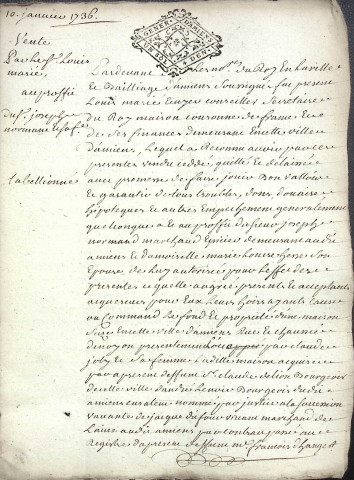 10. janvier 1736.
Vente
Par Louis
marié
au proffit
du Sr. joseph
normand
tabellionné
Pardevant les Nores. du Roy En la ville
Et Bailliage D'amiens Soussignés fut present
Louis marié Conseiller Secretaire
du Roy maison couronne de france Et
de Ses finances demeurant En cette ville
D'amiens, Lequel a Reconnu avoir par ces
presentes vendu ceddé, quitté Et delaissé
avec promesse de faire jouir Bon valloir
Et garantir de tous troubles, dons, douaire
hipoteques Et autres Empechemens generalement
quelconques au proffit du Sieur joseph
normand marchand Epicier demeurant audit
amiens Et damoiselle marie Son
Epouse de luy autorisée pour l'effet des
presentes ce quelle a agreé presents Et acceptants
acquereurs pour Eux Leurs hoirs ayants Cause
ou Command Le fond Et proprieté d'une maison
Size En cette ville D'amiens Rue Et Chaussée
de noyon presentement occuppé par claude
joly Et Sa femme Ladite maison acquise
par apresent deffunt Sr. claude Bourgeois
de cette ville d'andré Bourgeois dudit
amiens curateur nommé par justice a la Succession
vacante de jacque dufour vivant marchand de
audit amiens par contrat passé au
Registre d'apresent deffunt me. francois